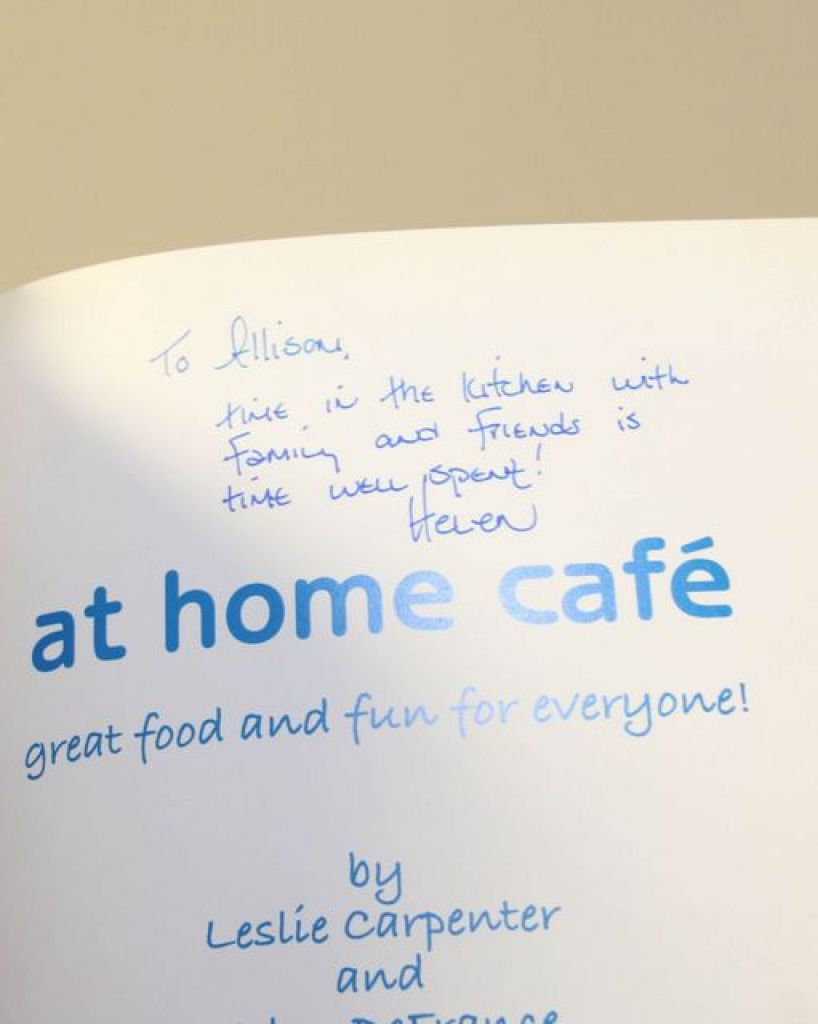 To Allison,
time in the kitchen with
family and friends is
time well spent!
Helen
at home café
great food and fun for everyone!
by
Leslie Carpenter
and
DeFrance